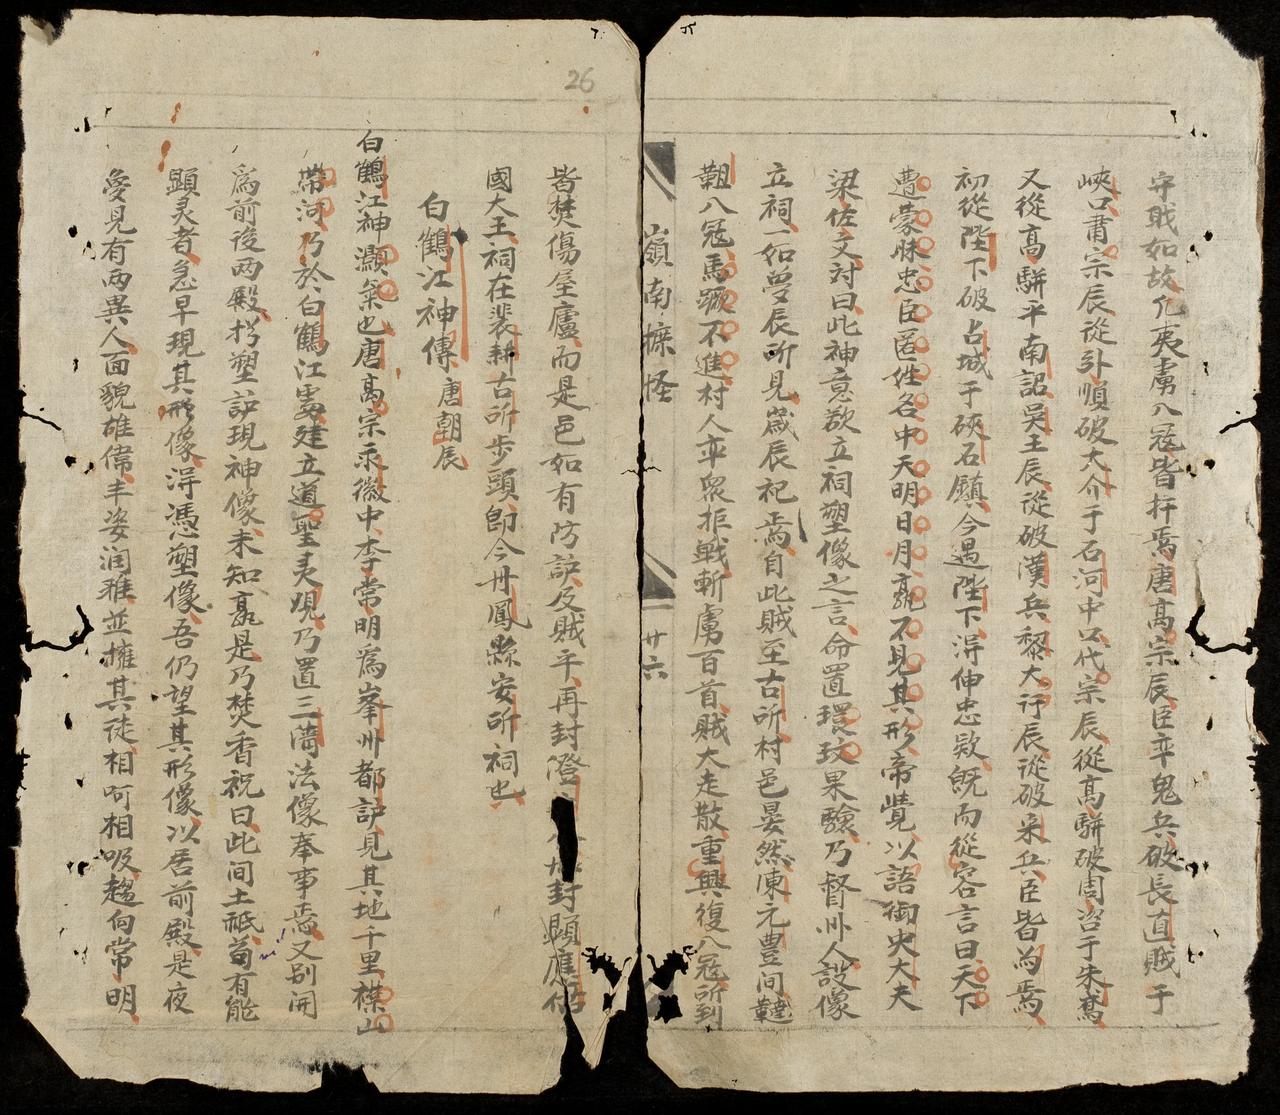 守戝如故凢夷虜入冦皆扞焉唐高宗辰臣率鬼兵破長直賊于
峽口肅宗辰從卧順破大介于石河中代宗辰從高駢破周岧于朱鳶
又從高駢平南詔吳王辰從破漢兵黎大行辰從破宋兵臣皆為焉
初從陛下破占城于硤石鎮今遇陛下淂伸忠欵旣而從容言曰天下
遭蒙昧忠臣匿姓名中天明日月孰不見其形帝覺以語御史大夫
梁佐文对曰此神意欲立祠塑像之言命置環玟果驗乃督州人設像
立祠一如夢辰所見歲辰祀焉自此賊至古所村邑晏然陳元豊间韃
靼入冦馬蹶不進村人率眾拒戦斬虜百首賊大走散重興復入冦所到
嶺南摭怪
廿六
26
皆焚傷屋廬而是邑如有防訪及賊平再封澄封顕應
國大王祠在裴耕古所步頭即今丹鳳縣安所祠也
白鶴江神傳唐朝辰
白鶴江神灝氣也唐高宗永徽中李常明爲峯州都訪見其地千里襟山
帶河乃於白鶴江處建立道聖夷覌乃置三淸法像奉事焉又別開
爲前後两殿捋塑訪現神像未知孰是乃焚香祝曰此间土祇苟有能
顕灵者急早現其形像淂憑塑像吾仍望其形像以居前殿是夜
夢見有两異人面貌雄偉丰姿润雅並擁其徒相呵相吸趨向常明